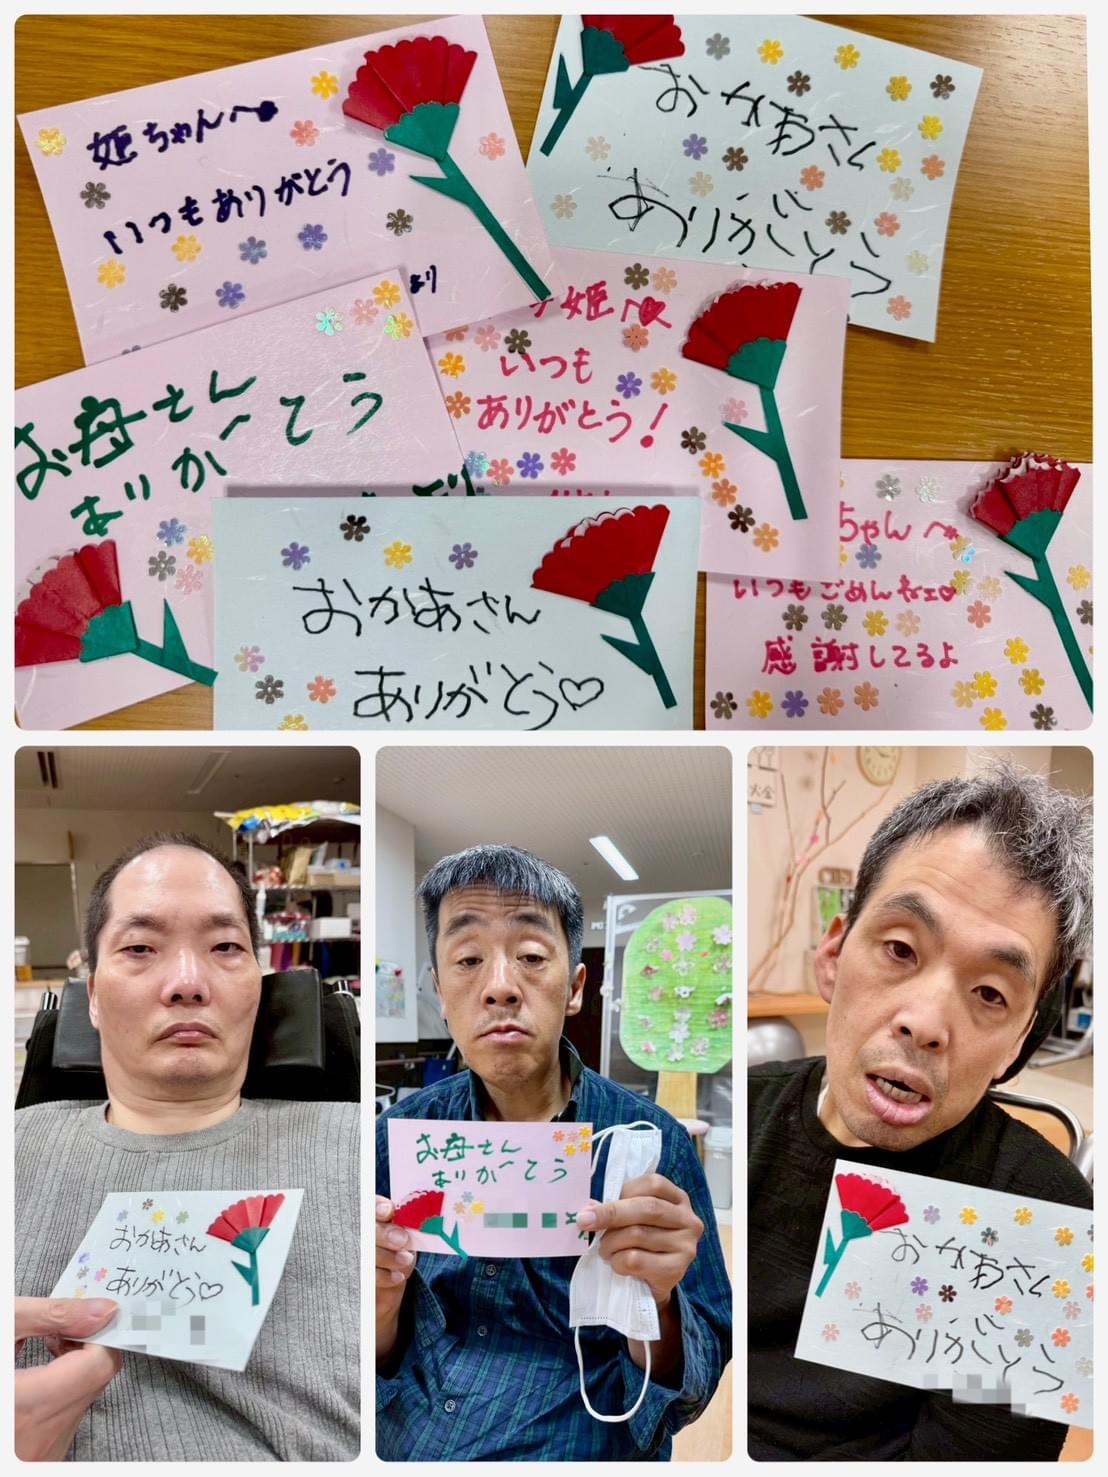 姫ちゃんへ
いつもありがとう
より
おかあさん
ありがとう
姫へ
いつも
ありがとう!
お母さん
ありがとう
おかあさん
ありがとう♡
ちゃんへ
いつもごめんねェ♡
感謝してるよ
おかあさん
ありがとう♡
お母さん
ありがとう
火金
おかあさん
ありがとう